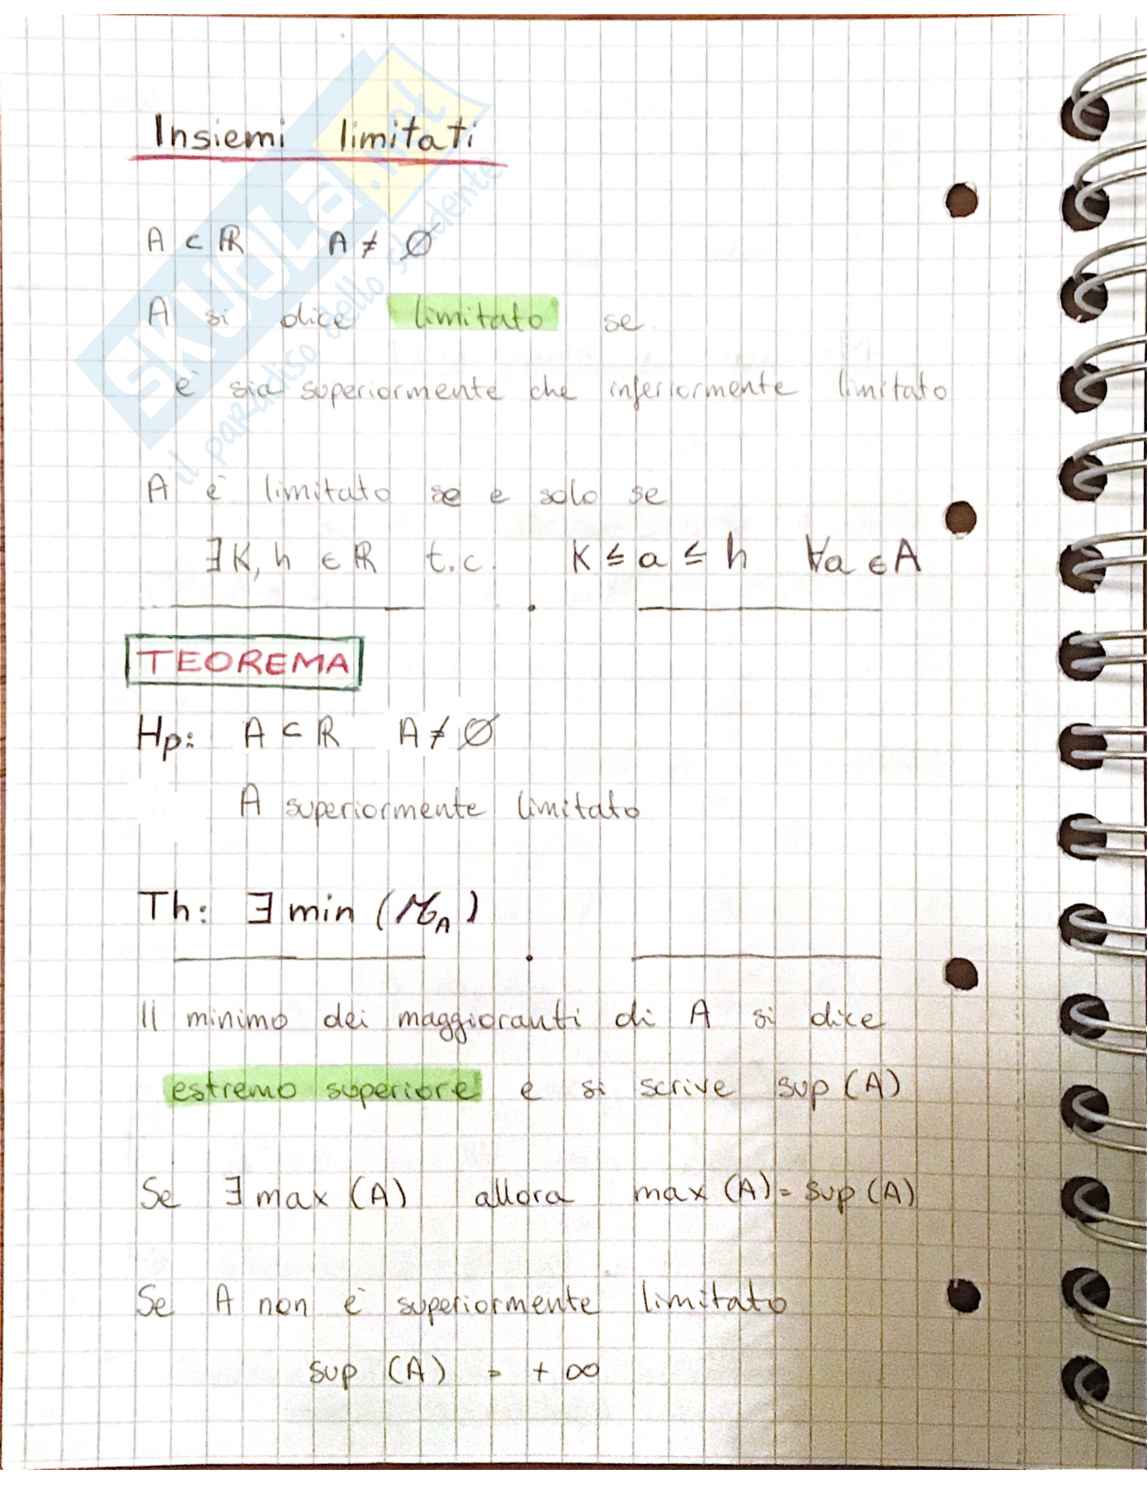 Insiemi limitati
A ⊂ ℝ A ≠ ∅
A si dice limitato se
e' sia superiormente che inferiormente limitato
A e' limitato se e solo se
∃ K, h ∈ ℝ t.c. K ≤ a ≤ h ∀a ∈ A
TEOREMA
Hp: A ⊂ ℝ A ≠ ∅
A superiormente limitato
Th: ∃ min (M_A)
Il minimo dei maggioranti di A si dice
estremo superiore e si scrive sup (A)
Se ∃ max (A) allora max (A) = sup (A)
Se A non e' superiormente limitato
sup (A) = + ∞
SKUOLA.net
il paradiso dello studente